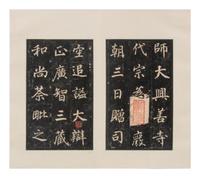 師大興善寺
代宗為之廢
朝三日贈司
空追謚大辯
正廣智三藏
和尚荼毗之